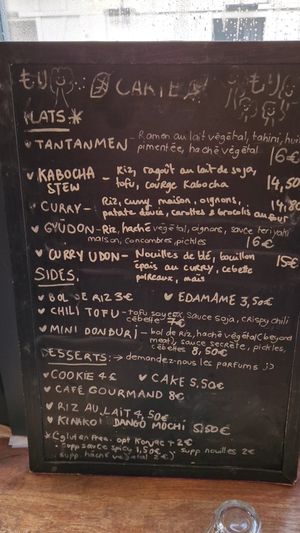 もり CARTE もり
PLATS
TANTANMEN - Ramen au lait végétal, tahini, huile
pimentée, haché végétal 16€
KABOCHA STEW - Riz, ragoût au lait de soja,
tofu, courge kabocha 14,50
CURRY - Riz, curry maison, oignons,
patate douce, carottes & brocolis au four 14,80
GYŪDON - Riz, haché végétal, oignons, sauce teriyaki
maison, concombres, pickles 16€
CURRY UDON - Nouilles de blé, bouillon
épais au curry, cebette
poireaux, maïs 15€
SIDES.
BOL DE RIZ 3€ EDAMAME 3,50€
CHILI TOFU - tofu soyeux, sauce soja, crispy chili
cebette 7€
MINI DONBURI - bol de riz, haché végétal (beyond
meat), sauce secrète, pickles,
cébettes 8,50€
DESSERTS: → demandez-nous les parfums :)
COOKIE 4€ CAKE 5.50€
CAFÉ GOURMAND 8€
RIZ AU LAIT 4,50€
KINAKO DANGO MOCHI 5,50€
* Gluten free. opt Konjac + 2€
- supp sauce spicy 1,50€ - supp nouilles 2€
- supp. haché végétal 2€